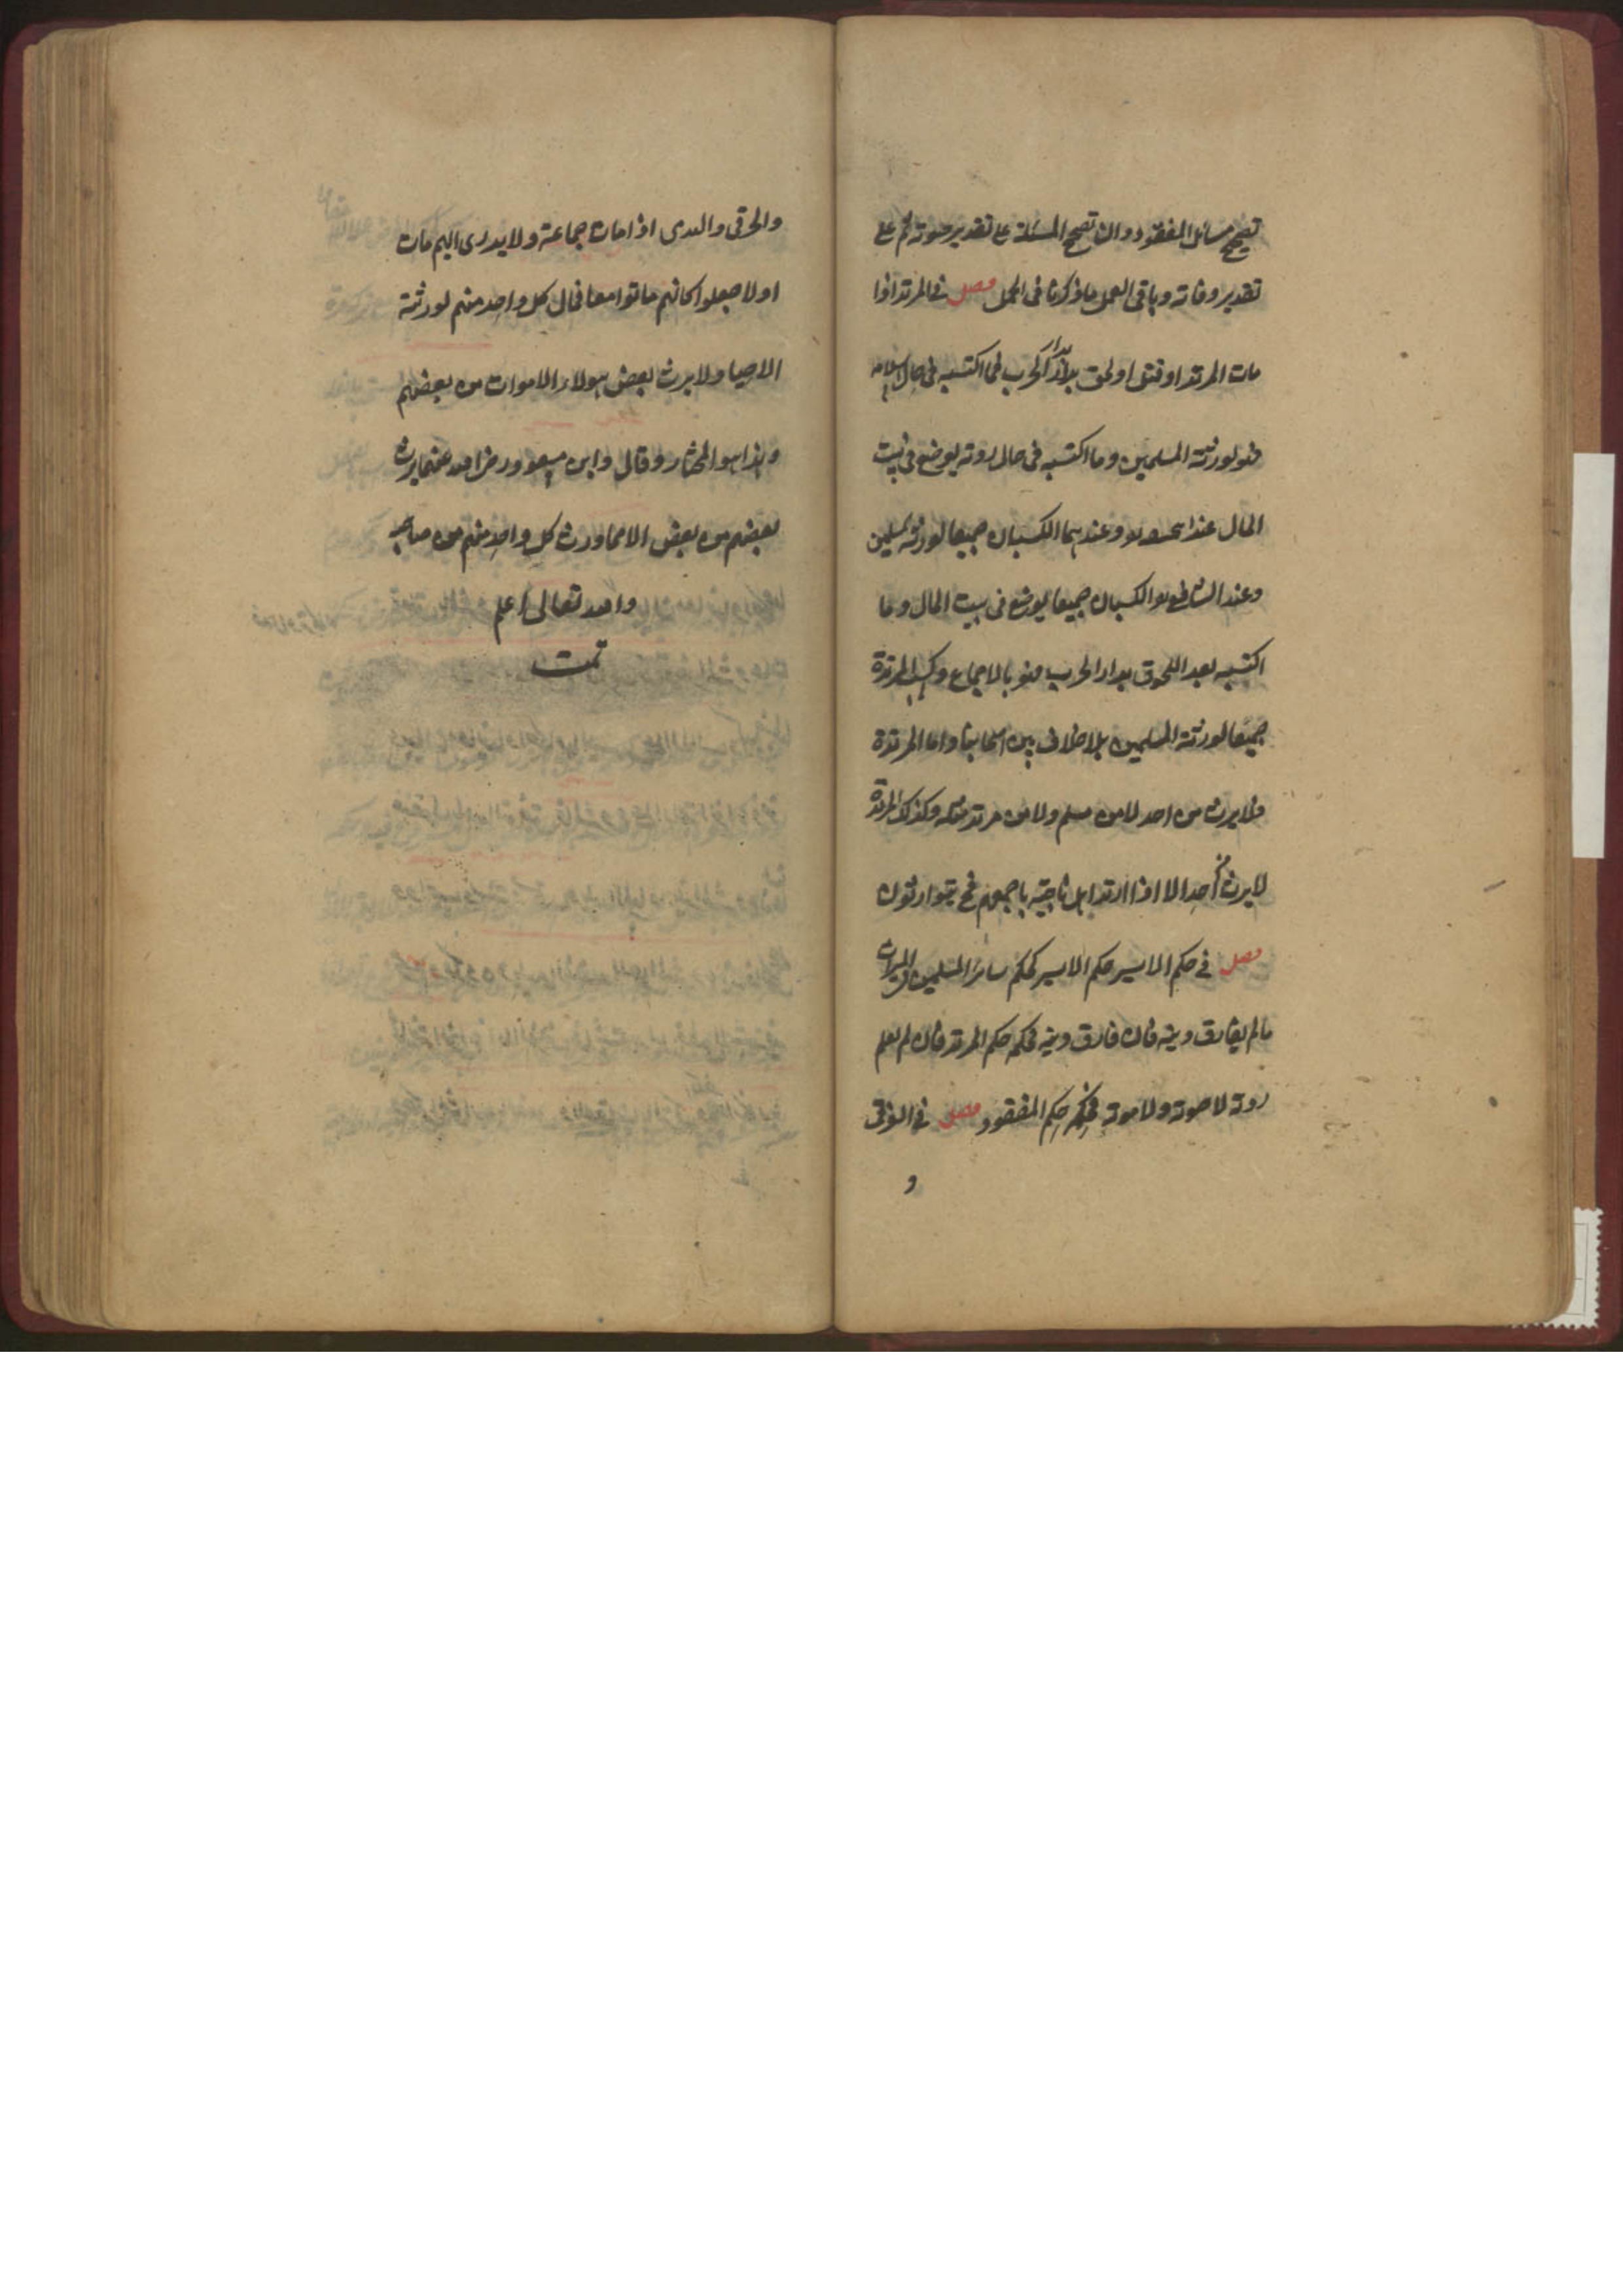 تصحيح مسائل المفقود وان تصحح المسئلة على تقدير حيوته ثم على
تقدير وفاته وباقى العمل ما ذكرنا فى الحمل فصل فى المرتد اذا
مات المرتد او قتل او لحق بدار الحرب فما اكتسبه فى حال اسلامه
فهو لورثته المسلمين وما اكتسبه فى حال ردته يوضع فى بيت
المال عند وعندهما الكسبان جميعا لورثته المسلمين
وعند الشافعى الكسبان جميعا يوضع فى بيت المال وما
اكتسبه بعد اللحوق بدار الحرب فهو بالاجماع وكسب المرتدة
جميعا لورثته المسلمين بلا خلاف بين اصحابنا واما المرتدة
فلا يرث من احد لا من مسلم ولا من مرتد مثله وكذلك المرتدة
لا يرث من احد الا اذا ارتد اهل ناحية باجمعهم فح يتوارثون
فصل فى حكم الاسير حكم الاسير كحكم سائر المسلمين فى الميراث
مالم يفارق دينه فان فارق دينه فحكمه حكم المرتد فان لم يعلم
ردته لا حيوته ولا موته فحكمه حكم المفقود فصل فى الغرقى
و
والحرقى والهدمى اذا مات جماعة ولا يدرى ايهم مات
اولا جعلوا كانهم ماتوا معا فمال كل واحد منهم لورثته
الاحياء ولا يرث بعض هولاء الاموات من بعضهم
وهذا هو المختار وقال وابن مسعود رضى الله عنهما يرث
بعضهم من بعض الا مما ورث كل واحد منهم من صاحبه
والله تعالى اعلم
تمت